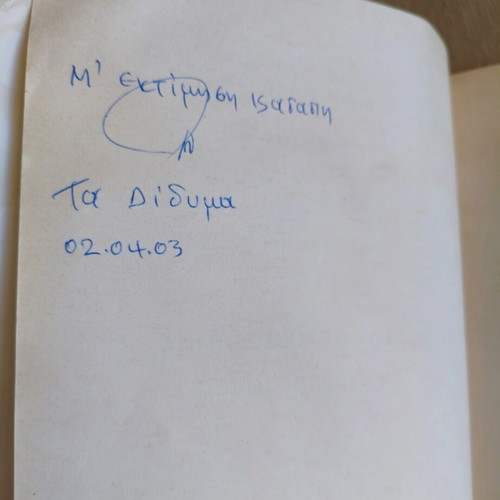 Μ' εκτίμηση & αγάπη
Τα Δίδυμα
02.04.03